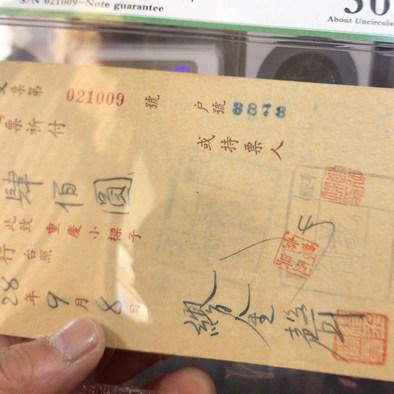 S/N 021009-Note guarantee
50
About Uncircula
支票第 021009 號 户號 8878
票祈付 或持票人
肆佰圓
此致 重慶小樑子
行台照
28年9月8日